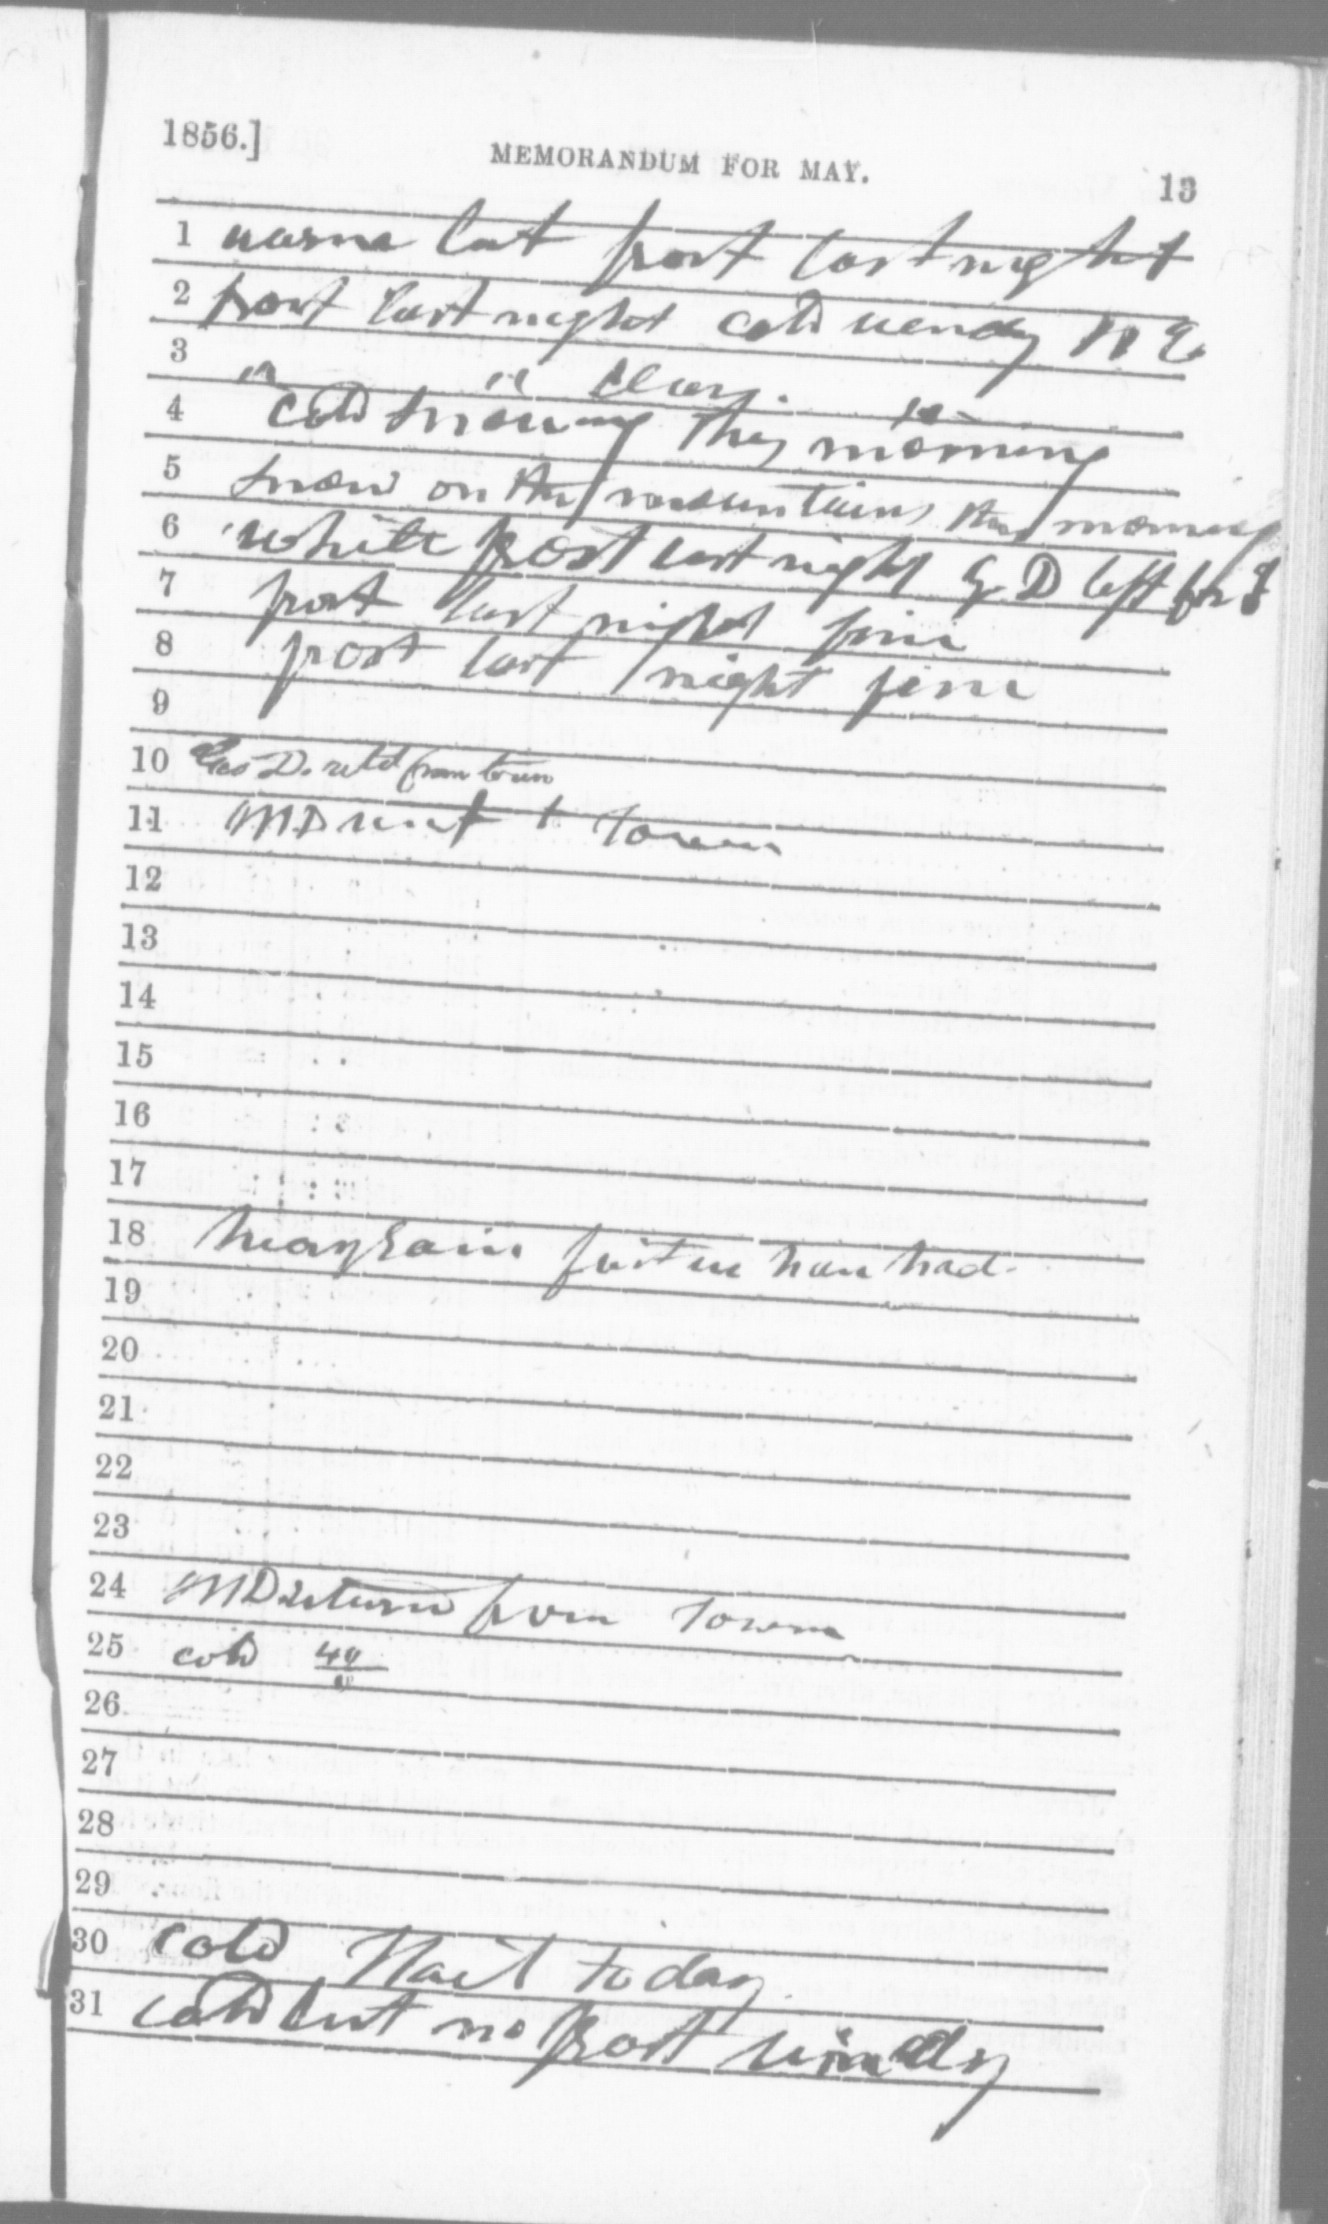 1856.] MEMORANDUM FOR MAY. 13
1 warm but frost last night
2 frost last night cold wendy N E
3 " " clear. "
4 cold snowing this morning
5 snow on the mountains this morning
6 white frost last night G D left for
7 frost last night fine
8 frost last night fine
9
10 Geo D. retd from town
11 M D went t Town
12
13
14
15
16
17
18 heavy rain first we have had
19
20
21
22
23
24 M D return from Town
25 cold
26
27
28
29
30 cold Hail to day
31 cold but no frost windy